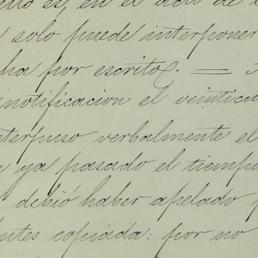 es, en el acto de
solo puede interponer
ha por escrito. =
notificacion el
interpuso verbalmente el
ya pasado el tiempo
debió haber apelado
ntes copiada: por no